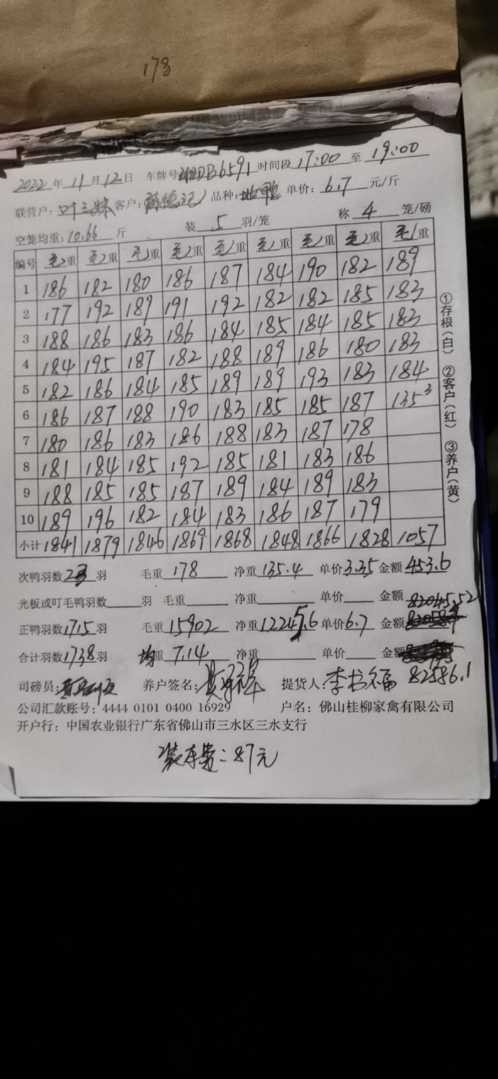 178
2022年11月12日 车牌号 B6591 时间段17:00至19:00
联营户: 客户: 品种: 单价:6.7元/斤
空笼均重:10.66斤 装5羽/笼 称4笼/磅
编号 毛重 毛重 毛重 毛重 毛重 毛重 毛重 毛重 毛重
1 186 182 180 186 187 184 190 182 189
2 177 192 189 191 192 182 182 185 183
3 188 186 183 186 184 185 184 185 183
4 184 195 187 182 188 189 186 180 183
5 182 186 184 185 189 189 193 183 184
6 186 187 188 190 183 185 185 187 135³
7 180 186 183 186 188 183 187 178
8 181 184 185 192 185 181 183 186
9 188 185 185 187 189 184 189 183
10 189 196 182 184 183 186 187 179
小计 1841 1879 1846 1869 1868 1848 1866 1828 1057
①存根(白) ②客户(红) ③养户(黄)
次鸭羽数23羽 毛重178 净重135.4 单价3.35 金额453.6
光板或叮毛鸭羽数 羽 毛重 净重 单价 金额
82045.52
正鸭羽数1715羽 毛重15902 净重12245.6 单价6.7 金额
合计羽数1738羽 均重7.14 净重 单价 金额
82586.1
司磅员: 养户签名: 提货人:李书福
公司汇款账号:4444 0101 0400 16929 户名:佛山桂柳家禽有限公司
开户行:中国农业银行广东省佛山市三水区三水支行
装车费:87元